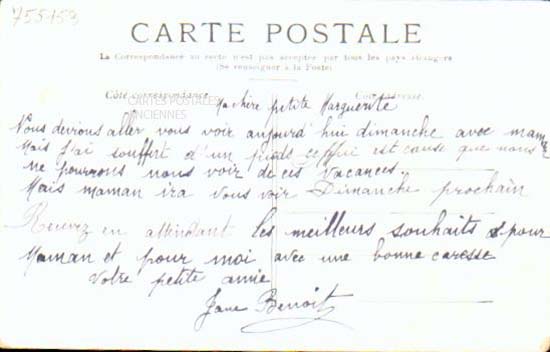 755153
CARTE POSTALE
La Correspondance au recto n'est pas acceptée par tous les pays étrangers
(Se renseigner à la Poste)
Côté correspondance
CARTES POSTALES
ANCIENNES
Ma chère petite Marguerite
Nous devrions aller vous voir aujourd'hui dimanche avec maman
Mais j'ai souffert d'un pieds ce qui est cause que nous
ne pourrons nous voir de ces vacances.
Mais maman ira vous voir Dimanche prochain
Recevez en attendant les meilleurs souhaits pour
Maman et pour moi avec une bonne caresse
Votre petite amie
Jane Benoit